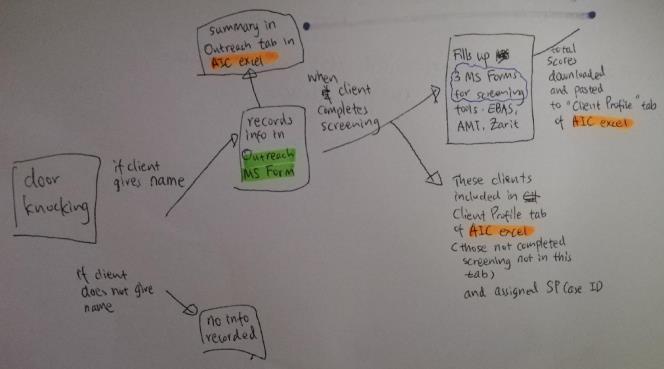 door
knocking
if client
gives name
if client
does not give
name
no info
recorded
records
info in
Outreach
MS Form
summary in
Outreach tab in
AIC excel
when
client
completes
screening
Fills up
3 MS Forms
for screening
tools - EBAS,
AMT, Zarit
total
scores
downloaded
and pasted
to "Client Profile" tab
of AIC excel
These clients
included in
Client Profile tab
of AIC excel
(those not completed
screening not in this
tab)
and assigned SP Case ID